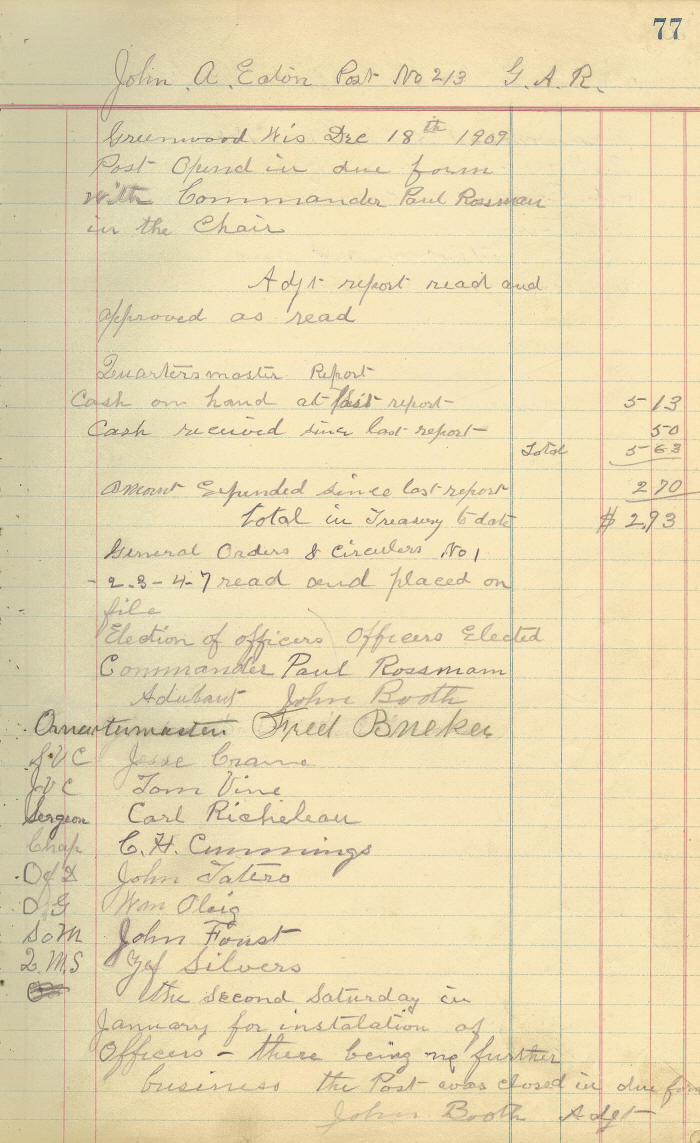 77
John A. Eaton Post No 213 G. A. R.
Greenwood Wis Dec 18th 1909
Post Opend in due form
with Commander Paul Rossman
in the Chair
Adjt report read and
approved as read
Quartersmaster Report
Cash on hand at last report 5 13
Cash received since last report 50
Total 5 63
Amount Expended since last report 2 70
Total in Treasury to date $ 2,93
General Orders & Circulers No 1
- 2-3-4-7 read and placed on
file
Election of officers Officers Elected
Commander Paul Rossmam
John Booth
Fred Bueker
S.V.C Jesse Crane
J.V.C Tom Vine
Sergeon Carl Richeleau
Chap C. H. Cummings
O of D John Tatero
O G Wm Oleig
S o M John Foust
Q. M. S Silvers
the second Saturday in
January for instalation of
Officers - there being no further
business the Post was closed in due form
John Booth Adgt